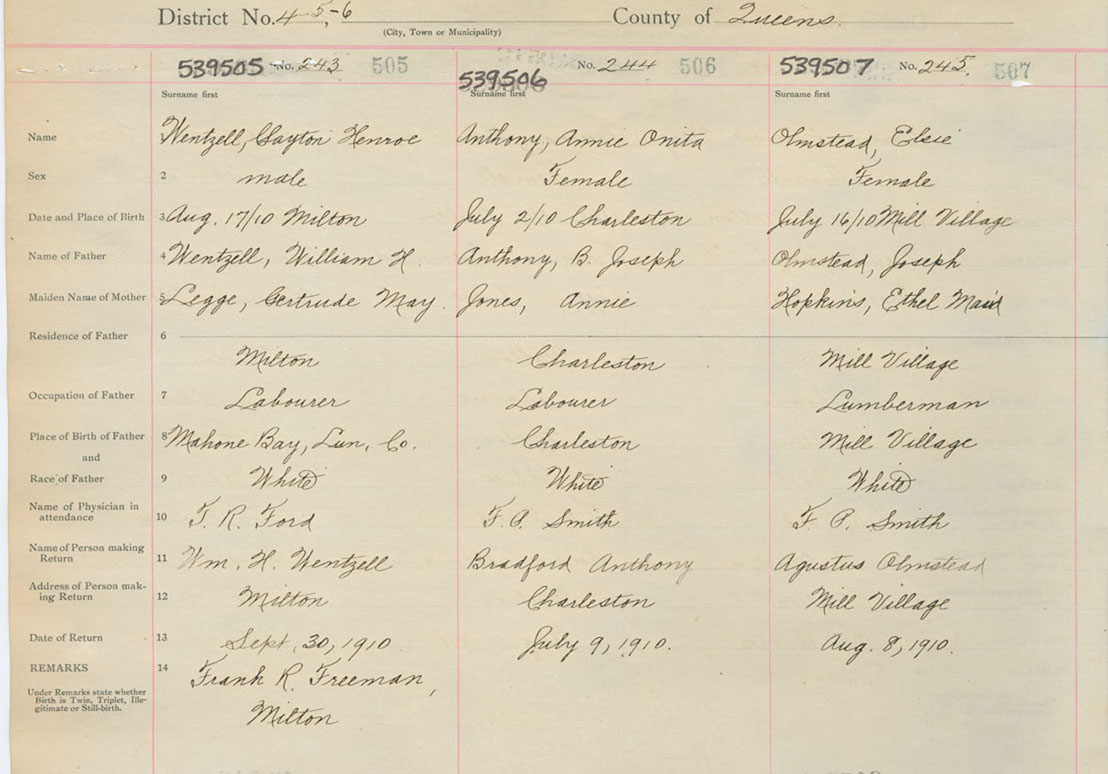 District No. 4-5-6 County of Queens.
(City, Town or Municipality)
539505 No. 243 505 539506 No. 244 506 539507 No. 245. 507
Surname first Surname first Surname first
Name Wentzell, Clayton Henroe Anthony, Annie Onita Olmstead, Elsie
Sex 2 male Female Female
Date and Place of Birth 3 Aug. 17/10 Milton July 2/10 Charleston July 16/10 Mill Village
Name of Father 4 Wentzell, William H Anthony, B. Joseph Olmstead, Joseph
Maiden Name of Mother 5 Legge, Gertrude May. Jones, Annie Hopkins, Ethel Maud
Residence of Father 6
Milton Charleston Mill Village
Occupation of Father 7 Labourer Labourer Lumberman
Place of Birth of Father 8 Mahone Bay, Lun. Co. Charleston Mill Village
and
Race of Father 9 White White White
Name of Physician in
attendance 10 T. R. Ford F. P. Smith F. P. Smith
Name of Person making
Return 11 Wm. H. Wentzell Bradford Anthony Agustus Olmstead
Address of Person mak-
ing Return 12 Milton Charleston Mill Village
Date of Return 13 Sept. 30, 1910 July 9, 1910. Aug. 8, 1910.
REMARKS 14 Frank R. Freeman,
Under Remarks state whether
Birth is Twin, Triplet, Ille-
gitimate or Still-birth.
Milton